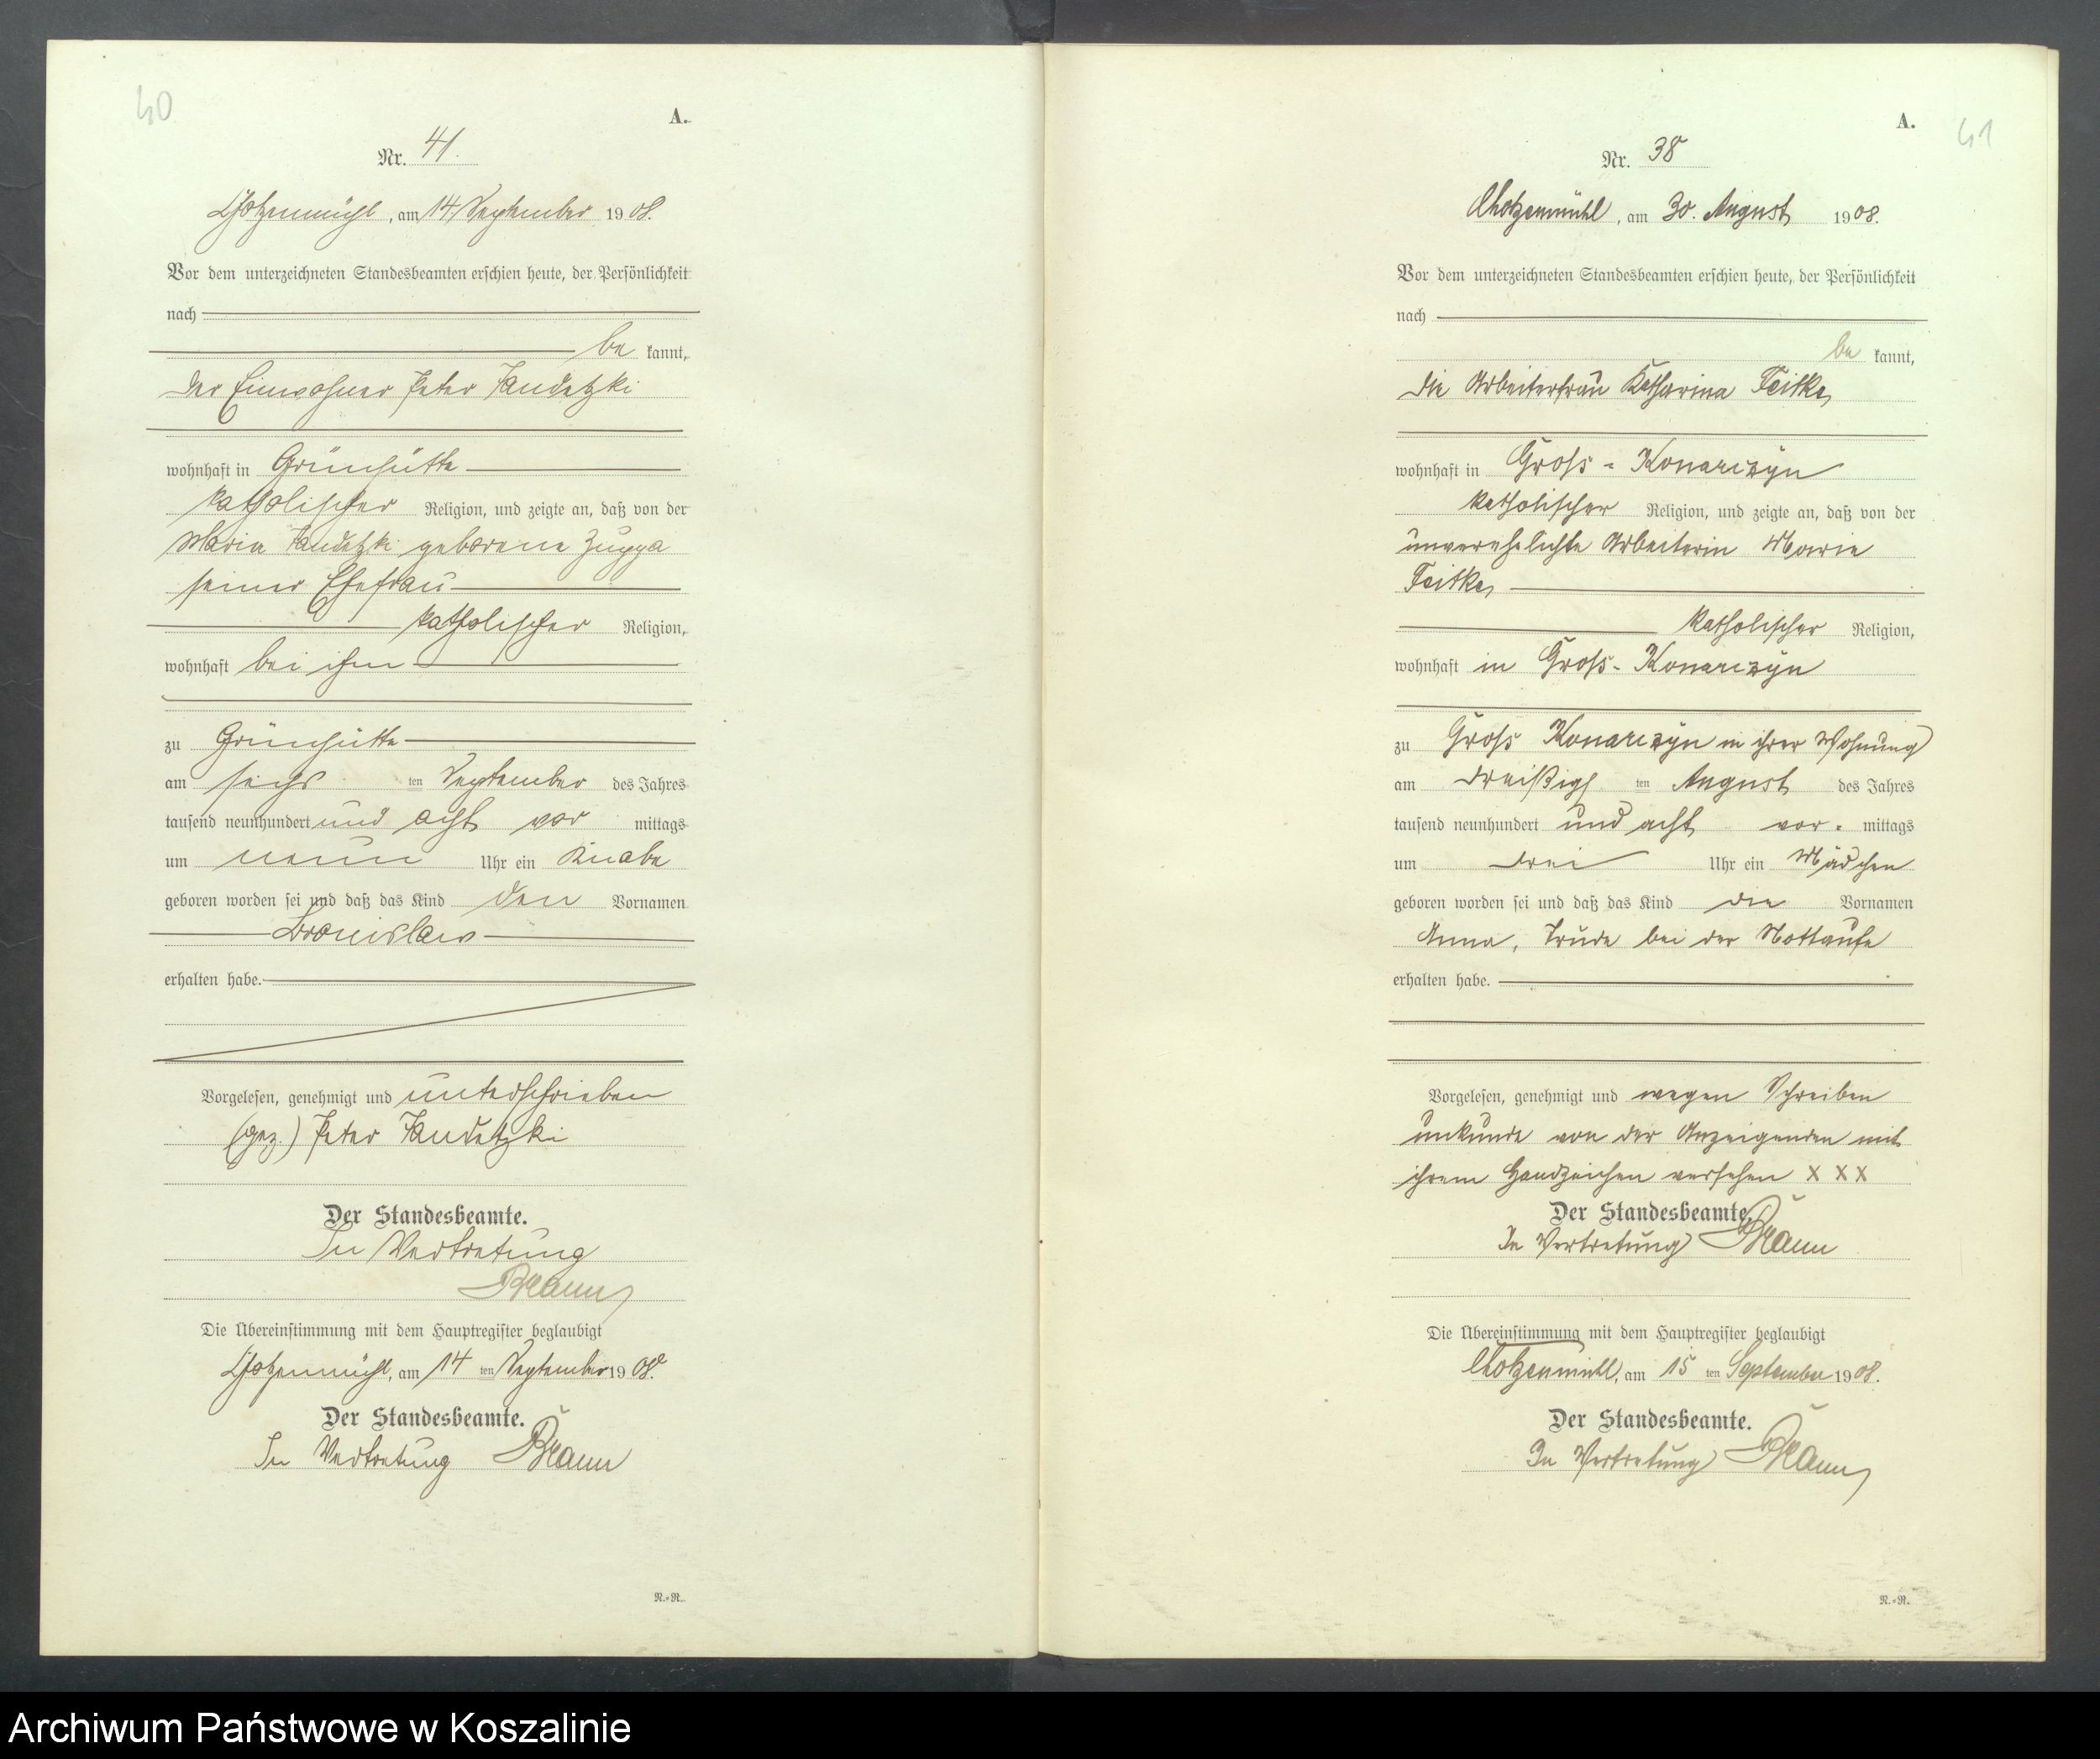 40
A.
Nr. 41.
Chotzenmühl, am 14 September 1908.
Vor dem unterzeichneten Standesbeamten erschien heute, der Persönlichkeit
nach
be kannt,
der Einwohner Peter Jandetzki
wohnhaft in Grünhütte
katholischer Religion, und zeigte an, daß von der
Maria Jandetzki geborene Zuppa
seiner Ehefrau
katholischer Religion,
wohnhaft bei ihm
zu Grünhütte
am sechs ten September des Jahres
tausend neunhundert und acht vor mittags
um neun Uhr ein Knabe
geboren worden sei und daß das Kind den Vornamen
Bronislaw
erhalten habe.
Vorgelesen, genehmigt und unterschrieben
(gez.) Peter Jandetzki
Der Standesbeamte.
In Vertretung
Die Übereinstimmung mit dem Hauptregister beglaubigt
Chotzenmühl, am 14 ten September 1908.
Der Standesbeamte.
In Vertretung
N.=N.
41
A.
Nr. 38
Chotzenmühl, am 30. August 1908.
Vor dem unterzeichneten Standesbeamten erschien heute, der Persönlichkeit
nach
be kannt,
die Arbeiterfrau Katharina Feitke
wohnhaft in Gross-Konarczyn
katholischer Religion, und zeigte an, daß von der
unverehelichte Arbeiterin Marie
Feitke
katholischer Religion,
wohnhaft in Gross-Konarczyn
zu Gross Konarczyn in ihrer Wohnung
am dreißigs ten August des Jahres
tausend neunhundert und acht vor= mittags
um drei Uhr ein Mädchen
geboren worden sei und daß das Kind die Vornamen
Anna, Trude bei der Nottaufe
erhalten habe.
Vorgelesen, genehmigt und wegen Schreiben
unkunde von der Anzeigenden mit
ihrem Handzeichen versehen X X X
Der Standesbeamte.
In Vertretung
Die Übereinstimmung mit dem Hauptregister beglaubigt
Chotzenmühl, am 15 ten September 1908.
Der Standesbeamte.
In Vertretung
N.=N.
Archiwum Państwowe w Koszalinie